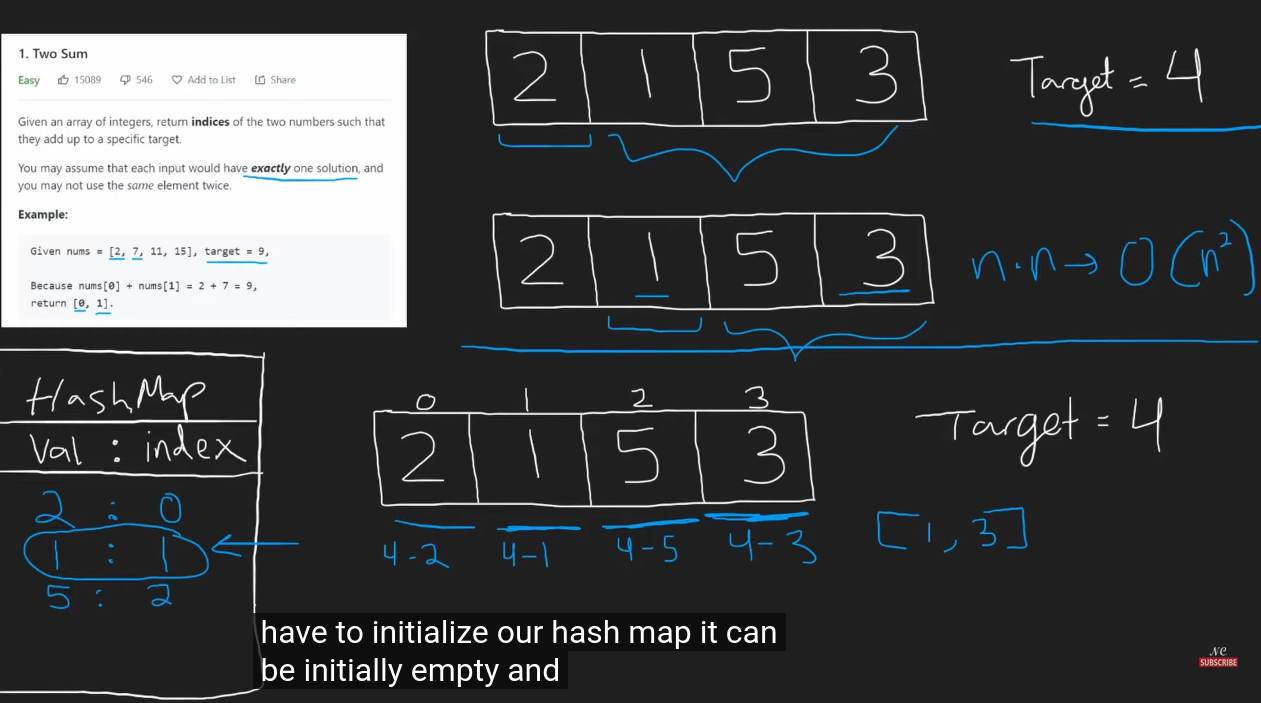 1. Two Sum
Easy 15089 546 Add to List Share
Given an array of integers, return indices of the two numbers such that
they add up to a specific target.
You may assume that each input would have exactly one solution, and
you may not use the same element twice.
Example:
Given nums = [2, 7, 11, 15], target = 9,
Because nums[0] + nums[1] = 2 + 7 = 9,
return [0, 1].
2 1 5 3
Target = 4
2 1 5 3
n·n→O(n²)
HashMap
Val : index
2 : 0
1 : 1
5 : 2
0 1 2 3
2 1 5 3
Target = 4
4-2 4-1 4-5 4-3
[1, 3]
have to initialize our hash map it can
be initially empty and
NC
SUBSCRIBE